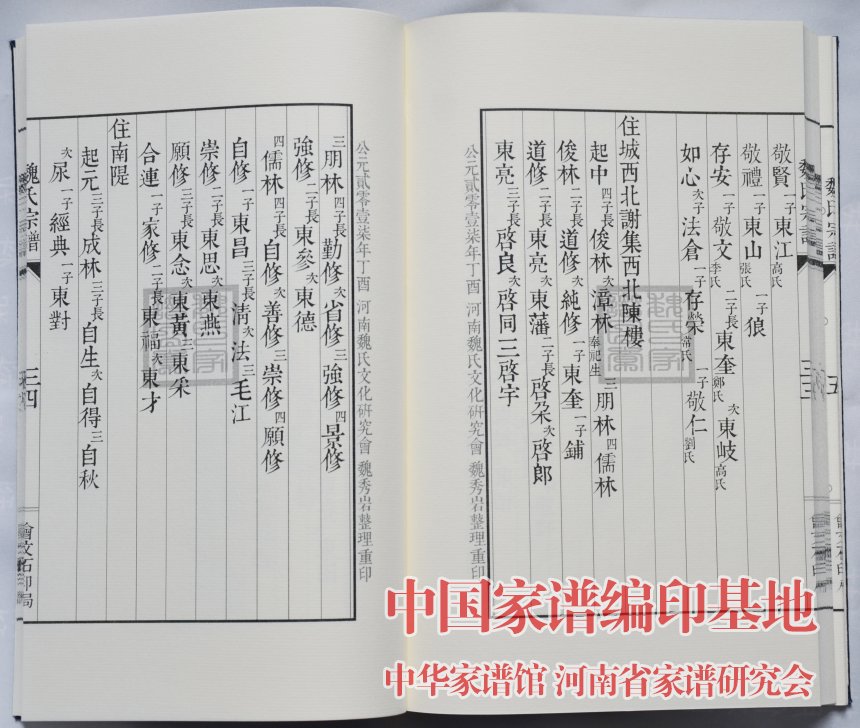 敬賢一子東江高氏
敬禮一子東山張氏一子狼
存安一子敬文李氏二子長東奎鄭氏次東岐高氏
如心次子法倉一子存榮常氏一子敬仁劉氏
住城西北謝集西北陳樓
起中四子長俊林次漳林奉祀生三朋林四儒林
俊林二子長道修次純修一子東奎一子鋪
道修二子長東亮次東藩二子長啓朶次啓郎
東亮三子長啓良次啓同三啓宇
公元貳零壹柒年丁酉 河南魏氏文化研究會 魏秀岩整理重印
公元貳零壹柒年丁酉 河南魏氏文化研究會 魏秀岩整理重印
三朋林四子長勤修次省修三強修四景修
強修二子長東參次東德
四儒林四子長自修次善修三崇修四願修
自修一子東昌三子長清次法三毛江
崇修二子長東思次東燕
願修三子長東念次東黃三東采
合連一子家修二子長東福次東才
住南隄
起元三子長成林三子長自生次自得三自秋
次尿一子經典一子東對
魏氏宗譜
三四
會文石印局
魏氏宗譜
中国家谱编印基地
中华家谱馆 河南省家谱研究会